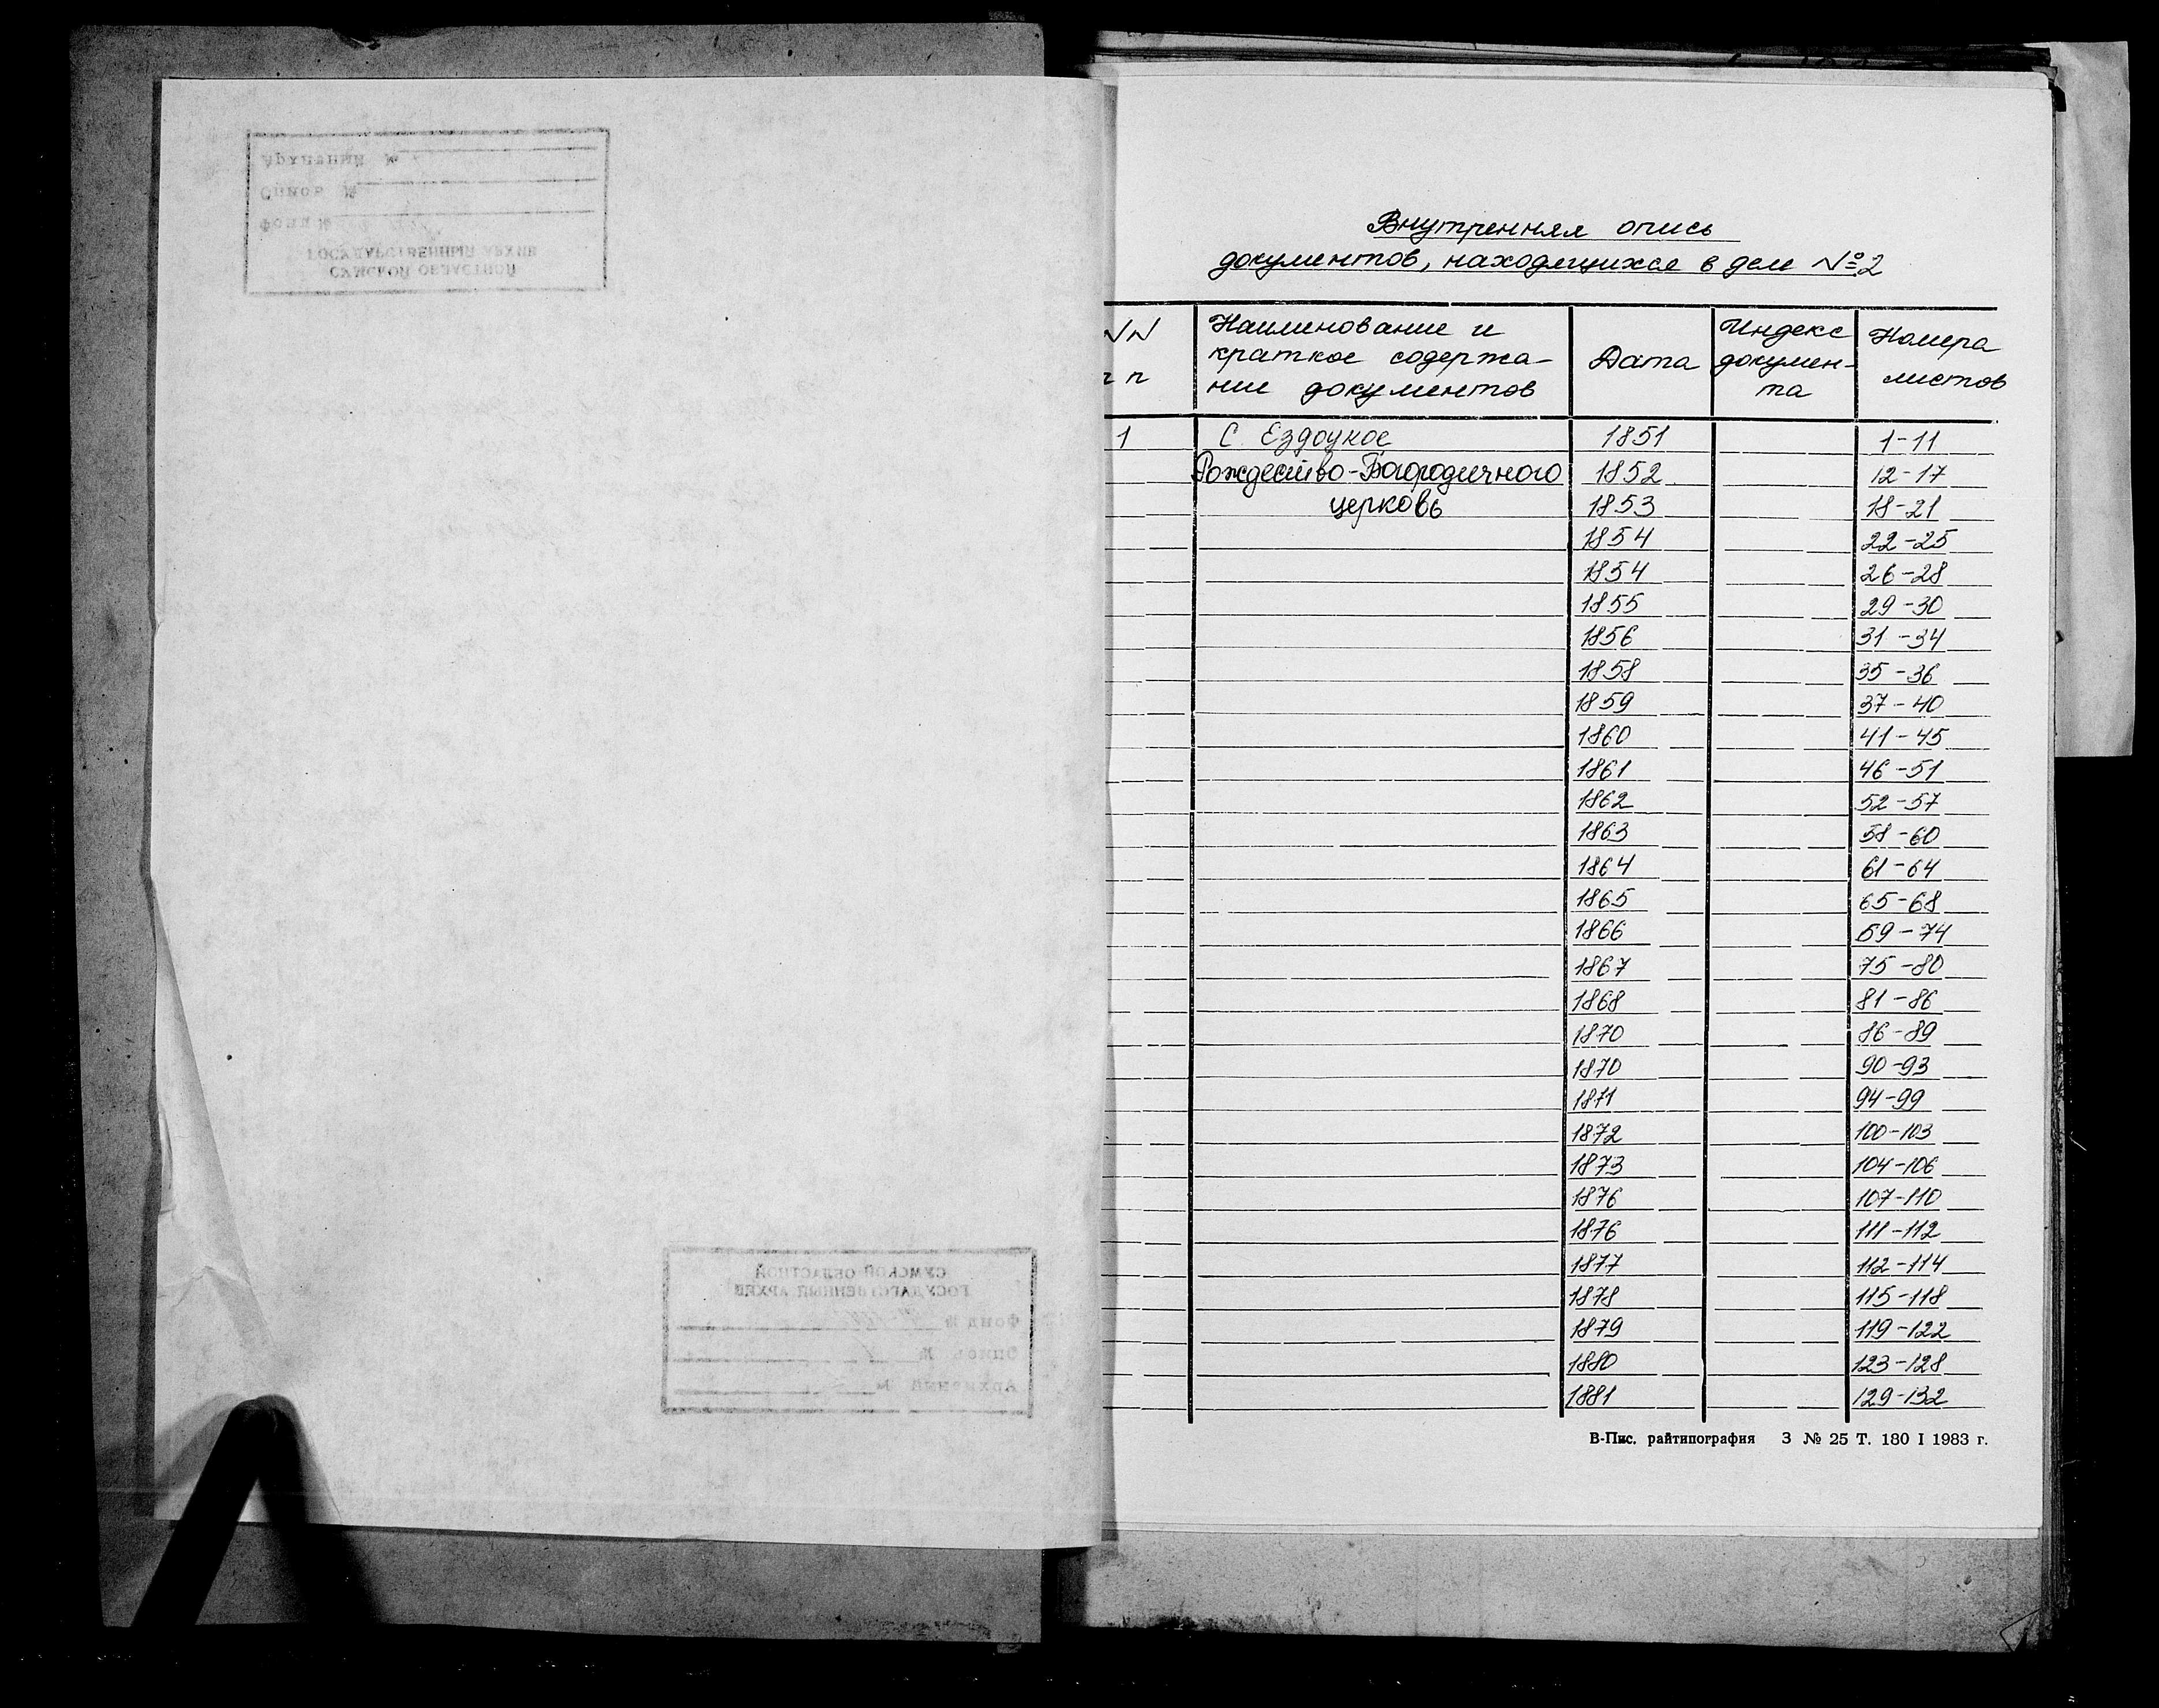 Архивный №
Опись №
Фонд №
ГОСУДАРСТВЕННЫЙ АРХИВ
СУМСКОЙ ОБЛАСТНОЙ
СУМСКОЙ ОБЛАСТНОЙ
ГОСУДАРСТВЕННЫЙ АРХИВ
Фонд №
Опись №
Архивный №
Внутренняя опись
документов, находящихся в деле №2
NN Наименование и Дата Индекс Номера
краткое содержа- докумен- листов
п п ние документов та
1 С. Ездоцкое 1851 1-11
Рождество-Богородичного 1852 12-17
церковь 1853 18-21
1854 22-25
1854 26-28
1855 29-30
1856 31-34
1858 35-36
1859 37-40
1860 41-45
1861 46-51
1862 52-57
1863 58-60
1864 61-64
1865 65-68
1866 69-74
1867 75-80
1868 81-86
1870 86-89
1870 90-93
1871 94-99
1872 100-103
1873 104-106
1876 107-110
1876 111-112
1877 112-114
1878 115-118
1879 119-122
1880 123-128
1881 129-132
В-Пис. райтипография 3 № 25 Т. 180 I 1983 г.